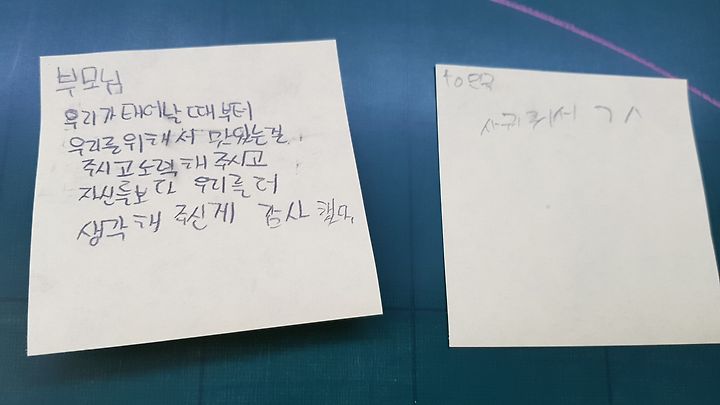 부모님
우리가 태어날 때부터
우리를 위해서 맛있는걸
주시고 노력해 주시고
자신들보다 우리를 더
생각해 주신게 감사
to 민국
사귀줘서 ㄱㅅ